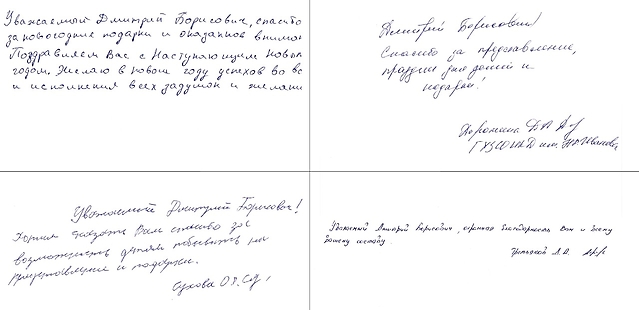 Уважаемый Дмитрий Борисович, спасибо
за новогодние подарки и оказанное вниман
Поздравляем Вас с Наступающим Новым
годом. Желаю в новом году успехов во вс
и исполнения всех задумок и желани
Дмитрий Борисович!
Спасибо за представление,
праздник для детей и
подарки!
Уважаемый Дмитрий Борисович!
Хотим сказать Вам спасибо за
возможность детям побывать на
представлении и подарки.
Сухова
Уважаемый Дмитрий Борисович, огромная благодарность Вам и всему
Вашему составу